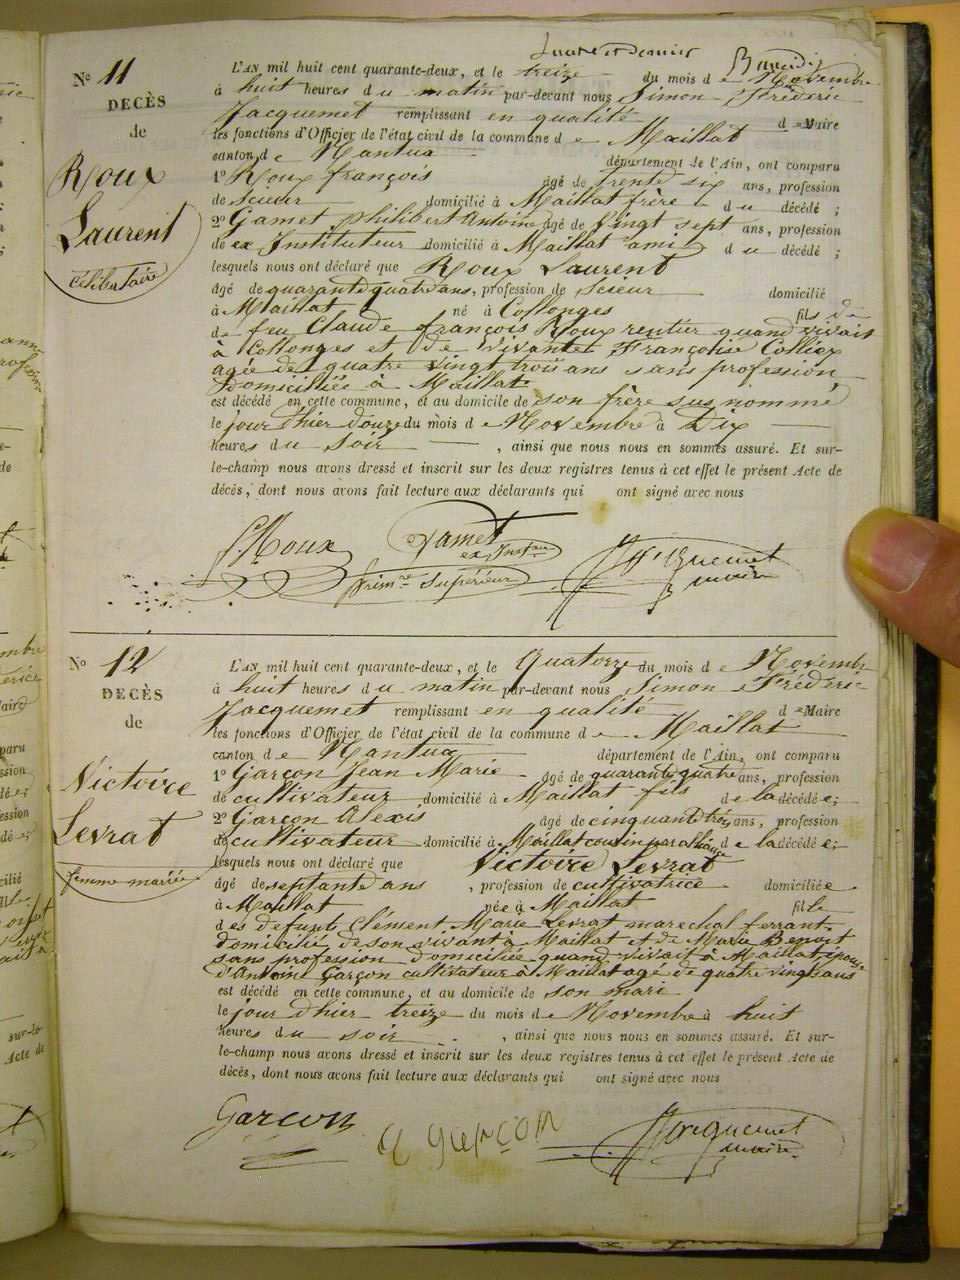 N° 11
DECÈS
de
Roux
Laurent
célibataire
L'AN mil huit cent quarante-deux, et le treize du mois de Novembre
à huit heures du matin par-devant nous Simon Fréderic
Jacquemet remplissant en qualité de Maire
les fonctions d'Officier de l'état civil de la commune de Maillat
canton de Nantua département de l'Ain, ont comparu
1° Roux françois âgé de trente six ans, profession
de scieur domicilié à Maillat frère du décédé ;
2° Gamet philibert Antoine âgé de vingt sept ans, profession
de ex Instituteur domicilié à Maillat ami du décédé ;
lesquels nous ont déclaré que Roux Laurent
âgé de quarante quatre ans, profession de scieur domicilié
à Maillat né à Collonges fils de
de feu Claude françois Roux rentier quand vivait
à Collonges et de vivante Françoise
agée de quatre vingt trois ans sans profession
domiciliée à Maillat
est décédé en cette commune, et au domicile de son frère sus nommé
le jour d'hier douze du mois de Novembre à Dix
heures du soir , ainsi que nous nous en sommes assuré. Et sur-
le-champ nous avons dressé et inscrit sur les deux registres tenus à cet effet le présent Acte de
décès, dont nous avons fait lecture aux déclarants qui ont signé avec nous
f. Roux Gamet
ex Inst
prim.re Supérieur Jacquemet
maire
N° 12
DECÈS
de
Victoire
Levrat
femme mariée
L'AN mil huit cent quarante-deux, et le Quatorze du mois de Novembre
à huit heures du matin par-devant nous Simon Fréderic
Jacquemet remplissant en qualité de Maire
les fonctions d'Officier de l'état civil de la commune de Maillat
canton de Nantua département de l'Ain, ont comparu
1° Garçon Jean Marie âgé de quarante quatre ans, profession
de cultivateur domicilié à Maillat fils de la décédée ;
2° Garçon Alexis âgé de cinquante trois ans, profession
de cultivateur domicilié à Maillat cousin par alliance de la décédée ;
lesquels nous ont déclaré que Victoire Levrat
âgé de septante ans , profession de cultivatrice domiciliée
à Maillat née à Maillat fille
des defunts Clément Marie Levrat marechal ferrant
domicilié de son vivant à Maillat et de Marie Benoit
sans profession domiciliée quand vivait à Maillat épouse
d'Antoine Garçon cultivateur à Maillat agé de quatre vingt ans
est décédé en cette commune, et au domicile de son mari
le jour d'hier treize du mois de Novembre à huit
heures du soir , ainsi que nous nous en sommes assuré. Et sur-
le-champ nous avons dressé et inscrit sur les deux registres tenus à cet effet le présent Acte de
décès, dont nous avons fait lecture aux déclarants qui ont signé avec nous
Garçon A garcon Jacquemet
maire